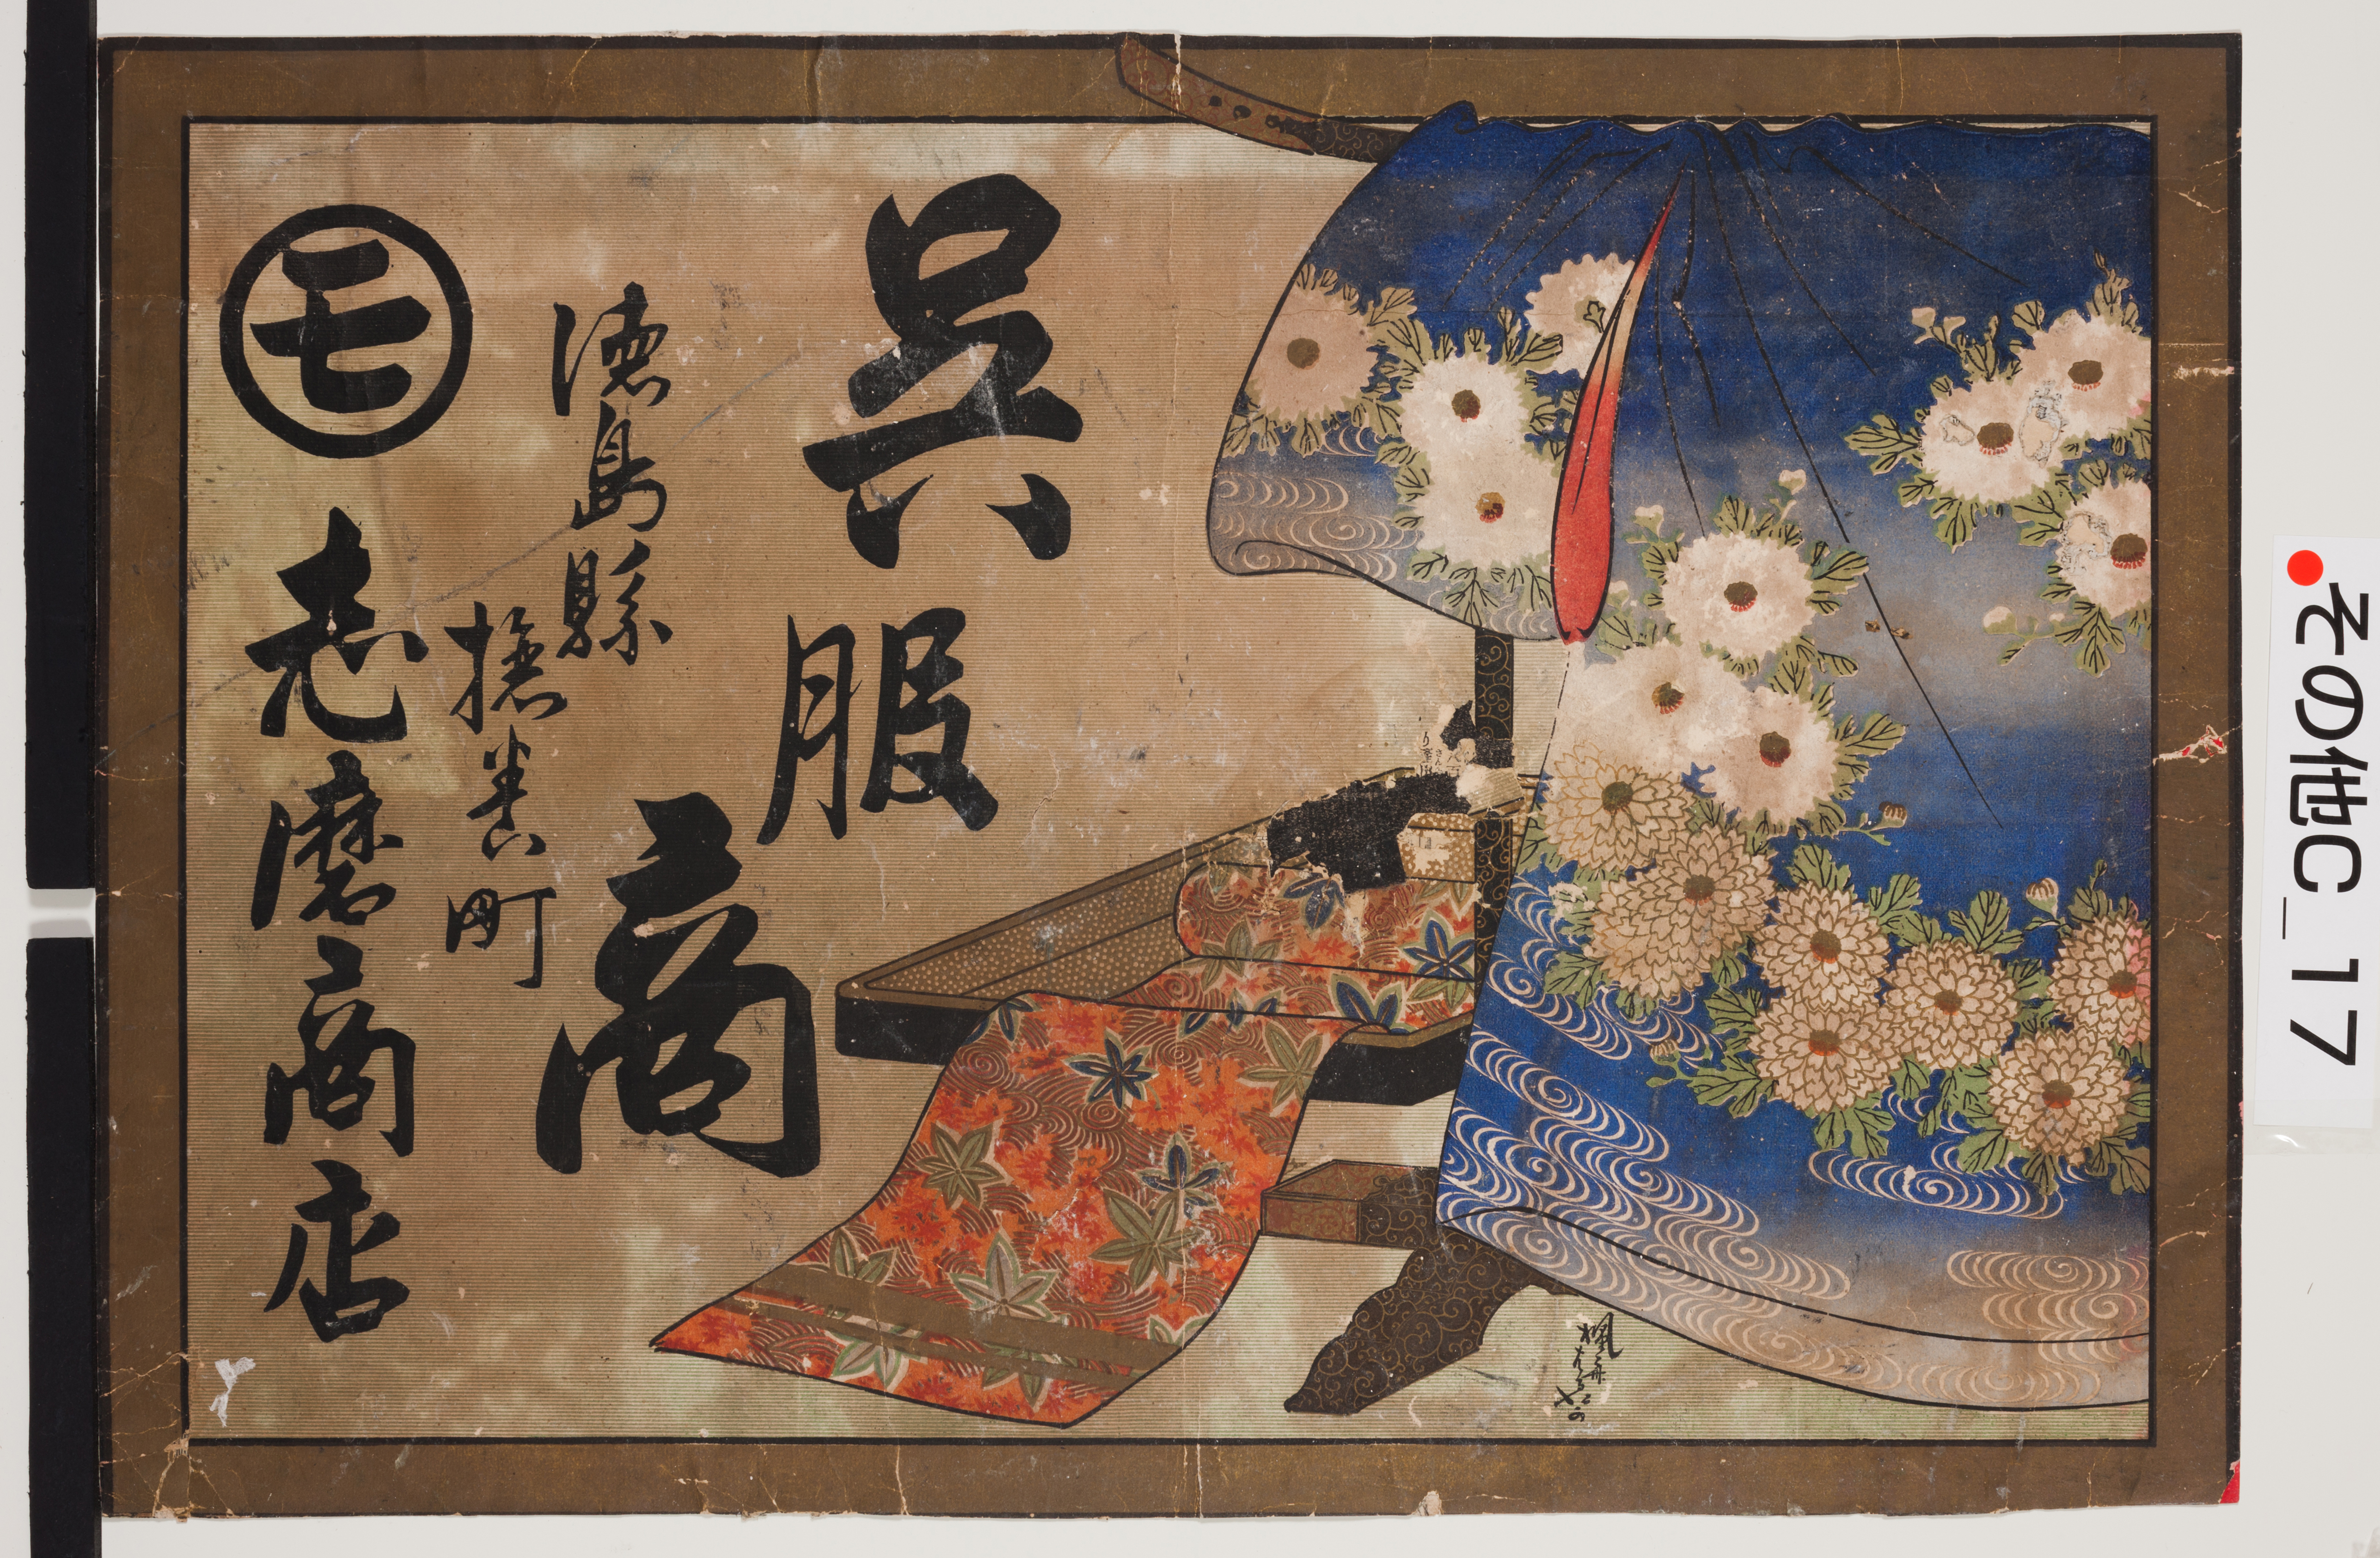 呉服商
徳島縣
撫養町
モ
志摩商店
その他C_17